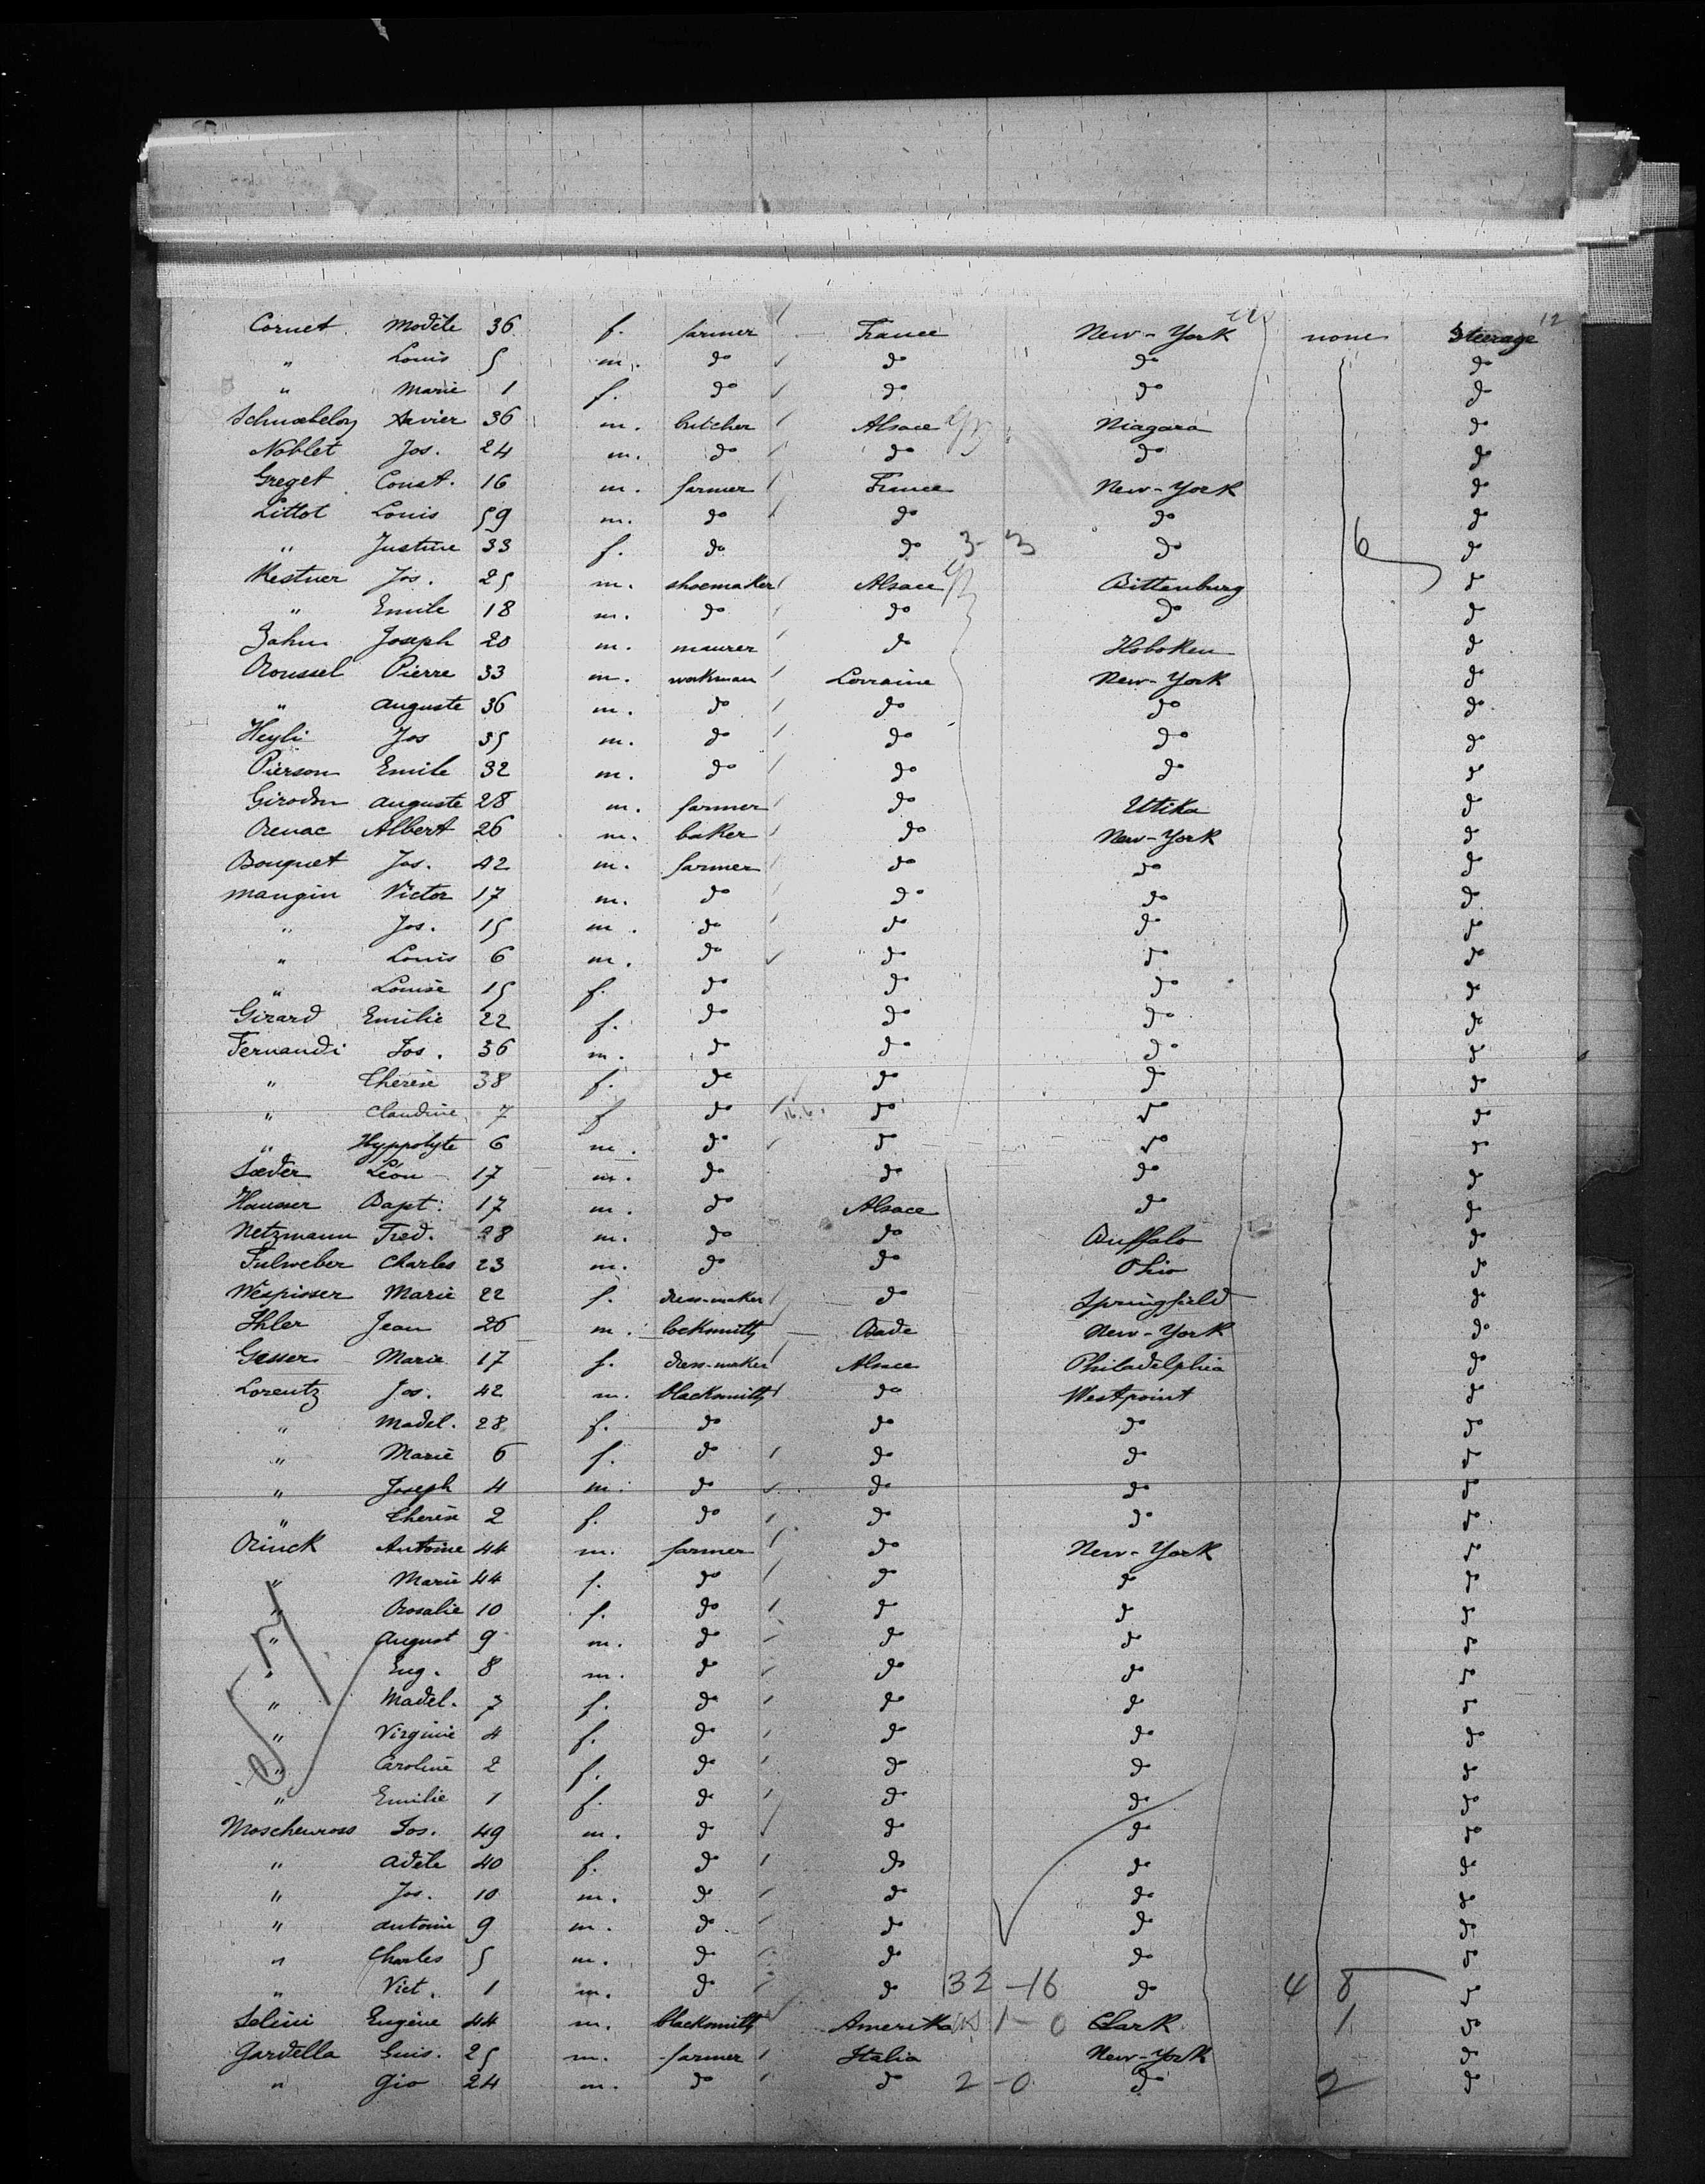 12
Cornet Modèle 36 f. farmer France New-York none Steerage
" Louis 5 m. do do do do
" Marie 1 f. do do do do
Schnæbelen Xavier 36 m. butcher Alsace Niagara do
Noblet Jos. 24 m. do do do do
Greget Const. 16 m. farmer France New-York do
Littot Louis 59 m. do do do do
" Justine 33 f. do do 3-3 do 6 do
Kestner Jos. 25 m. shoemaker Alsace Bittenburg do
" Emile 18 m. do do do do
Zahn Joseph 20 m. maurer do Hoboken do
Roussel Pierre 33 m. workman Lorraine New-York do
" Auguste 36 m. do do do do
Heyli Jos 35 m. do do do do
Pierson Emile 32 m. do do do do
Girodon Auguste 28 m. farmer do Utika do
Renac Albert 26 m. baker do New-York do
Bouquet Jos. 42 m. farmer do do do
Mangin Victor 17 m. do do do do
" Jos. 15 m. do do do do
" Louis 6 m. do do do do
" Louise 15 f. do do do do
Girard Emilie 22 f. do do do do
Fernandi Jos. 36 m. do do do do
" Therèse 38 f. do do do do
" Claudine 7 f do do do do
" Hyppolyte 6 m. do do do do
Sæder Léon 17 m. do do do do
Hausser Bapt. 17 m. do Alsace do do
Netzmann Fred. 28 m. do do Buffalo do
Fulweber Charles 23 m. do do Ohio do
Wespisser Marie 22 f. dress-maker do Springfield do
Ihler Jean 26 m. locksmith Bade New-York do
Gesser Marie 17 f. dress-maker Alsace Philadelphia do
Lorentz Jos. 42 m. blacksmith do Westpoint do
" Madel. 28 f. do do do do
" Marie 6 f. do do do do
" Joseph 4 m. do do do do
" Therèse 2 f. do do do do
Rinck Antoine 44 m. farmer do New-York do
" Marie 44 f. do do do do
" Rosalie 10 f. do do do do
" August 9 m. do do do do
" Eug. 8 m. do do do do
" Madel. 7 f. do do do do
" Virginie 4 f. do do do do
" Caroline 2 f. do do do do
" Emilie 1 f. do do do do
Moschenross Jos. 49 m. do do do do
" Adèle 40 f. do do do do
" Jos. 10 m. do do do do
" Antoine 9 m. do do do do
" Charles 5 m. do do do do
" Vict. 1 m. do do 32-16 do 48 do
Selini Eugène 44 m. blacksmith Amerika US 1-0 Clark 1 do
Gardella Guis. 25 m. farmer Italia New-York do
" Gio 24 m. do do 2-0 do 2 do